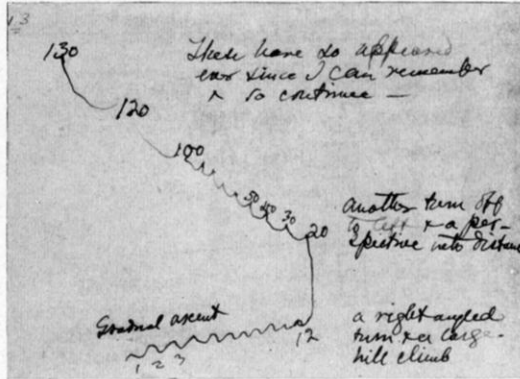 13
130
These have so appeared
ever since I can remember
& so continue —
120
100
50 40 30
20
another turn off
to left & a per-
spective into distance
Gradual ascent
12
1 2 3
a right angled
turn & a large
hill climb